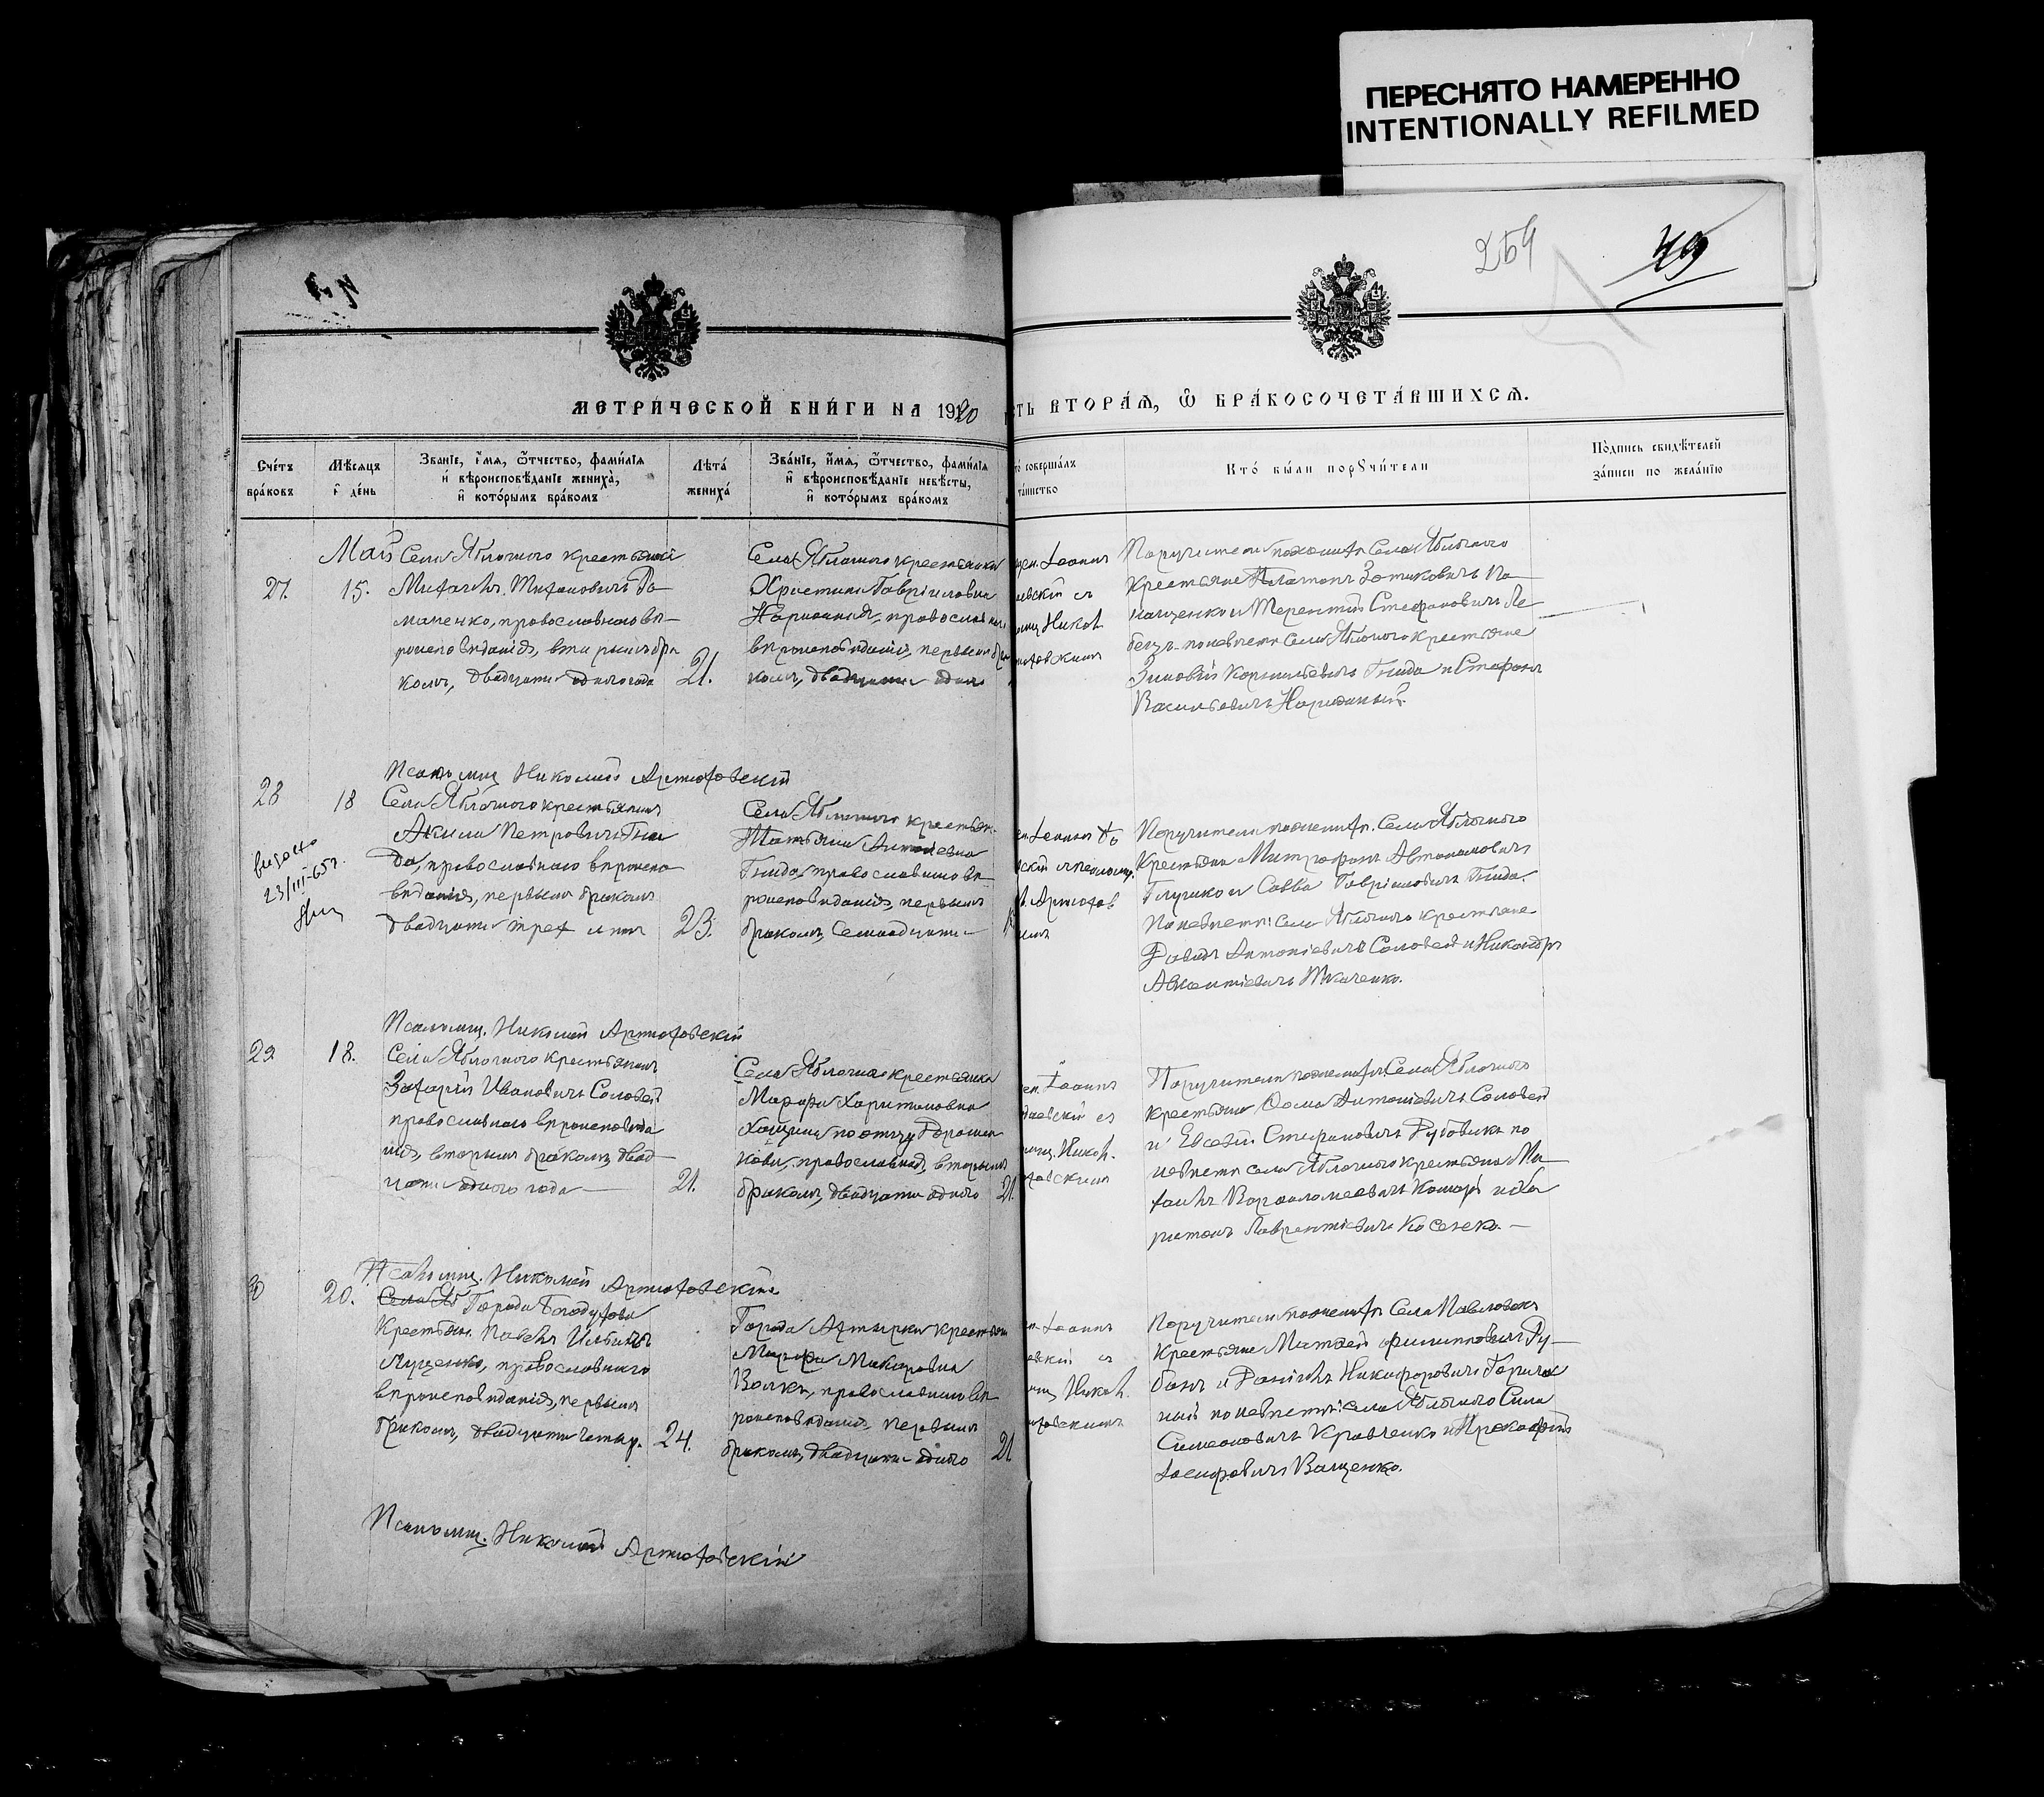 ПЕРЕСНЯТО НАМЕРЕННО
INTENTIONALLY REFILMED
254
49
МЕТРИЧЕСКОЙ КНИГИ НА 1920
СТЬ ВТОРАЯ, Ѿ БРАКОСОЧЕТАВШИХСЯ.
Счётъ браковъ
Мѣсяцъ и день
Званіе, имя, ѿтчество, фамилія и вѣроисповѣданіе жениха, и которымъ бракомъ
Лѣта жениха
Званіе, имя, ѿтчество, фамилія и вѣроисповѣданіе невѣсты, и которымъ бракомъ
то совершалъ таинство
Кто были поручители
Подпись свидѣтелей записи по желанію
27.
Май
15.
Села Яблочного крестьянинъ
Михаилъ
православнаго вѣ-
роисповѣданія, вторымъ бра
комъ, двадцати одного года
21.
Села Яблочного крестьянка
Христина Гавріиловна
православнаго
вѣроисповѣданія, первымъ бра
комъ, двадцати одного
Іоаннъ
Никол.
Поручители по женихѣ Села Яблочного
Крестьяне Платонъ Зотиковичъ Па-
нащенко и Терентій Стефановичъ Ле
бедь по невѣстѣ Села Яблочного крестьяне
Зиновій Корнильевичъ Гнида и Стефанъ
Васильевичъ Нариданый.
Псаломщ Николай Артюховскій
28
18
выдано
23/III-65г.
Села Яблочного крестьянинъ
Акила Петровичъ Гни
да, православнаго вѣроиспо
вѣданія, первымъ бракомъ
двадцати трех лѣтъ
23.
Села Яблочного крестьян.
Татьяна Антоніевна
Гнида православнаго вѣ
роисповѣданія, первымъ
бракомъ, Семнадцати
Поручители по женихѣ. Села Яблочного
Крестьяне Митрофанъ Автономовичъ
Глушко и Савва Гавріиловичъ Гнида.
По невѣстѣ: села Яблочного крестьяне
Давидъ Антоніевичъ Соловей и Никандръ
Авксентіевичъ Ткаченко.
Псаломщ. Николай Артюховскій
29
18.
Села Яблочного крестьянинъ
Захарій Ивановичъ Соловей
православнаго вѣроисповѣда
нія, вторымъ бракомъ, двад
цати одного года
21.
Села Яблочного крестьянка
Марфа Харитоновна
по отцу Дорошен
кова, православнаго, вторымъ
бракомъ, двадцати одного
21.
Іоаннъ
Никол.
Поручители по женихѣ Села Яблочного
крестьяне Ѳома Антоніевичъ Соловей
и Евсевій Стефановичъ Рубовикъ по
невѣстѣ села Яблочного крестьяне Ми
хаилъ Варфоломеевичъ Комарь и Ха
ритонъ Лаврентіевичъ Косенко.
Псаломщ. Николай Артюховскій
30
20.
Города Богодухова
Крестьян. Павелъ Ильичъ
Луценко, православнаго
вѣроисповѣданія, первымъ
бракомъ, двадцати четыр.
24.
Города Ахтырки крестьян
Марфа Макаровна
Волкъ, православнаго вѣ
роисповѣданія, первымъ
бракомъ, двадцати одного
21
Іоаннъ
Никол.
Поручители по женихѣ Села Павловокъ
Крестьяне Матвей Филипповичъ Ру-
банъ и Даніилъ Никифоровичъ
по невѣстѣ: села Яблочного Сила
Симеоновичъ Кравченко и Прокофій
Іосифовичъ Ващенко.
Псаломщ. Николай Артюховскій